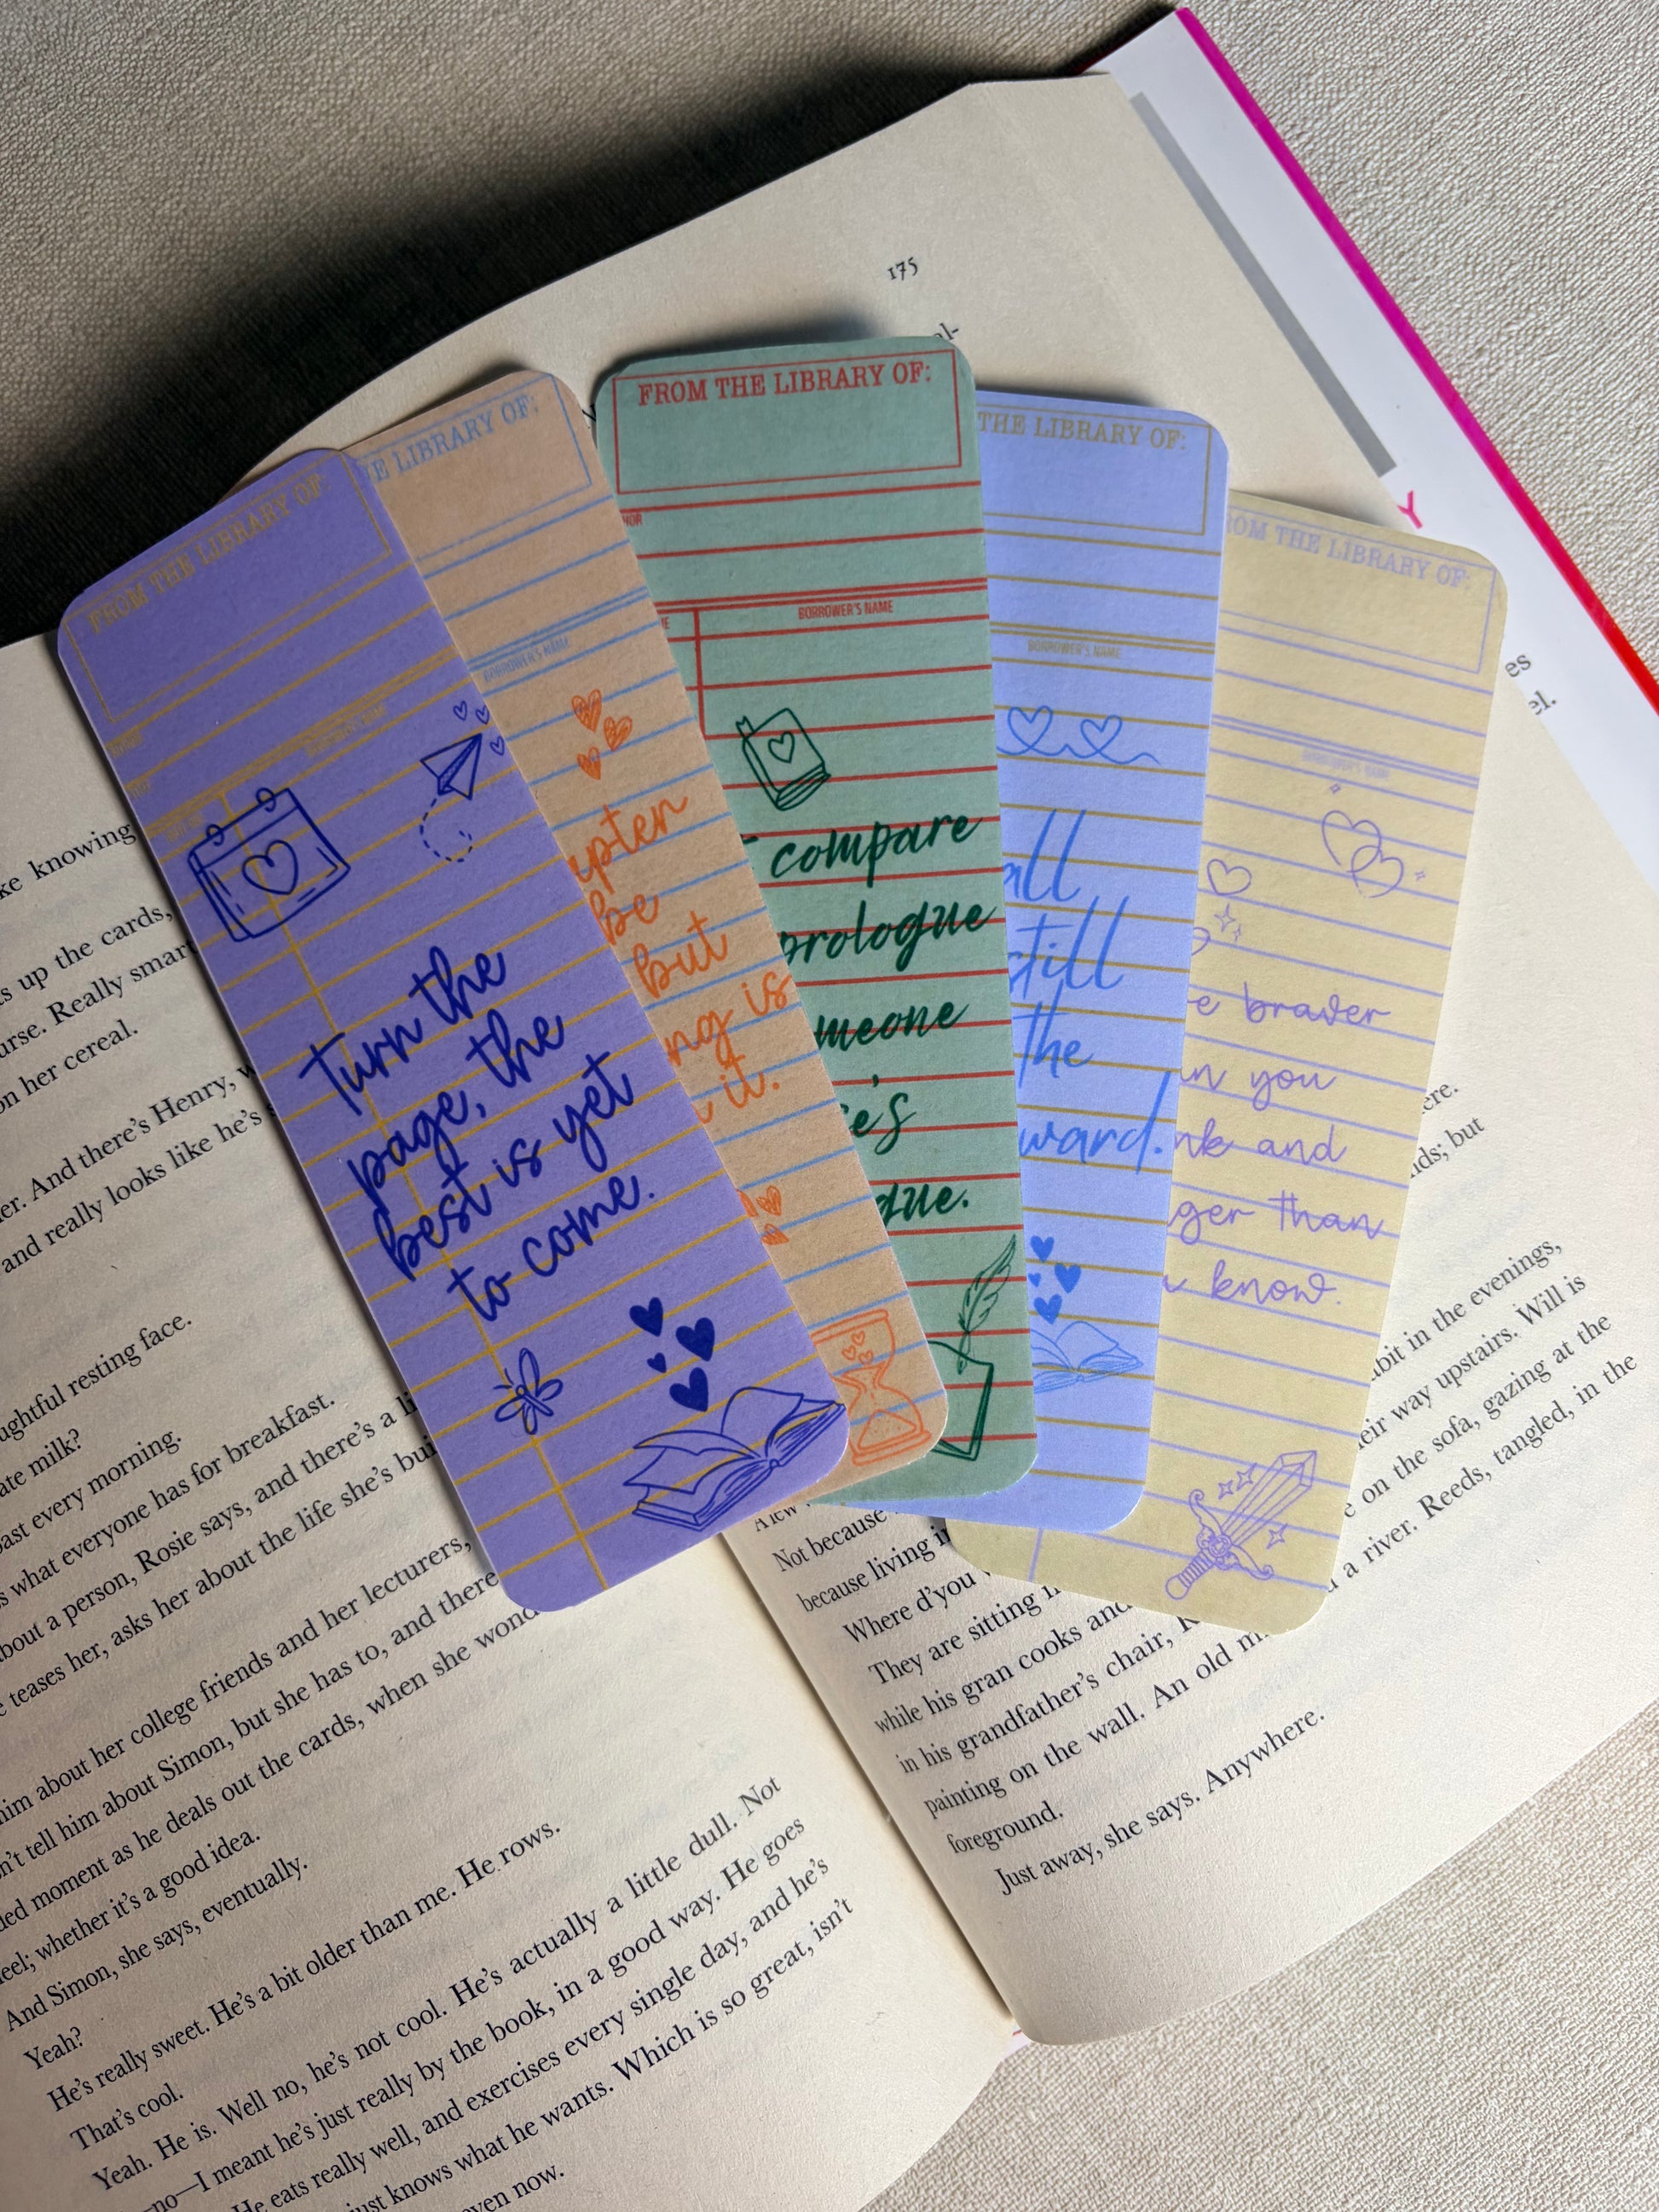 175
FROM THE LIBRARY OF:
BORROWER'S NAME
Turn the
page, the
best is yet
to come.
LIBRARY OF:
BORROWER'S NAME
be
but
is
it.
FROM THE LIBRARY OF:
BORROWER'S NAME
compare
prologue
THE LIBRARY OF:
BORROWER'S NAME
all
still
the
THE LIBRARY OF:
BORROWER'S NAME
braver
you
and
than
know.
Y
knowing
up the cards,
Really smart
on her cereal.
And there's Henry,
and really looks like he's
resting face.
milk?
every morning.
what everyone has for breakfast.
about a person, Rosie says, and there's a
teases her, asks her about the life she's
him about her college friends and her lecturers,
tell him about Simon, but she has to, and there
moment as he deals out the cards, when she
whether it's a good idea.
And Simon, she says, eventually.
Yeah?
He's really sweet. He's a bit older than me. He rows.
That's cool.
Yeah. He is. Well no, he's not cool. He's actually a little dull. Not
no—I meant he's just really by the book, in a good way. He goes
He eats really well, and exercises every single day, and he's
just knows what he wants. Which is so great, isn't
even now.
Not because
because living
Where d'you
They are sitting
while his gran cooks and
in his grandfather's chair,
painting on the wall. An old
foreground.
Just away, she says. Anywhere.
but
in the evenings,
their way upstairs. Will is
on the sofa, gazing at the
a river. Reeds, tangled, in the